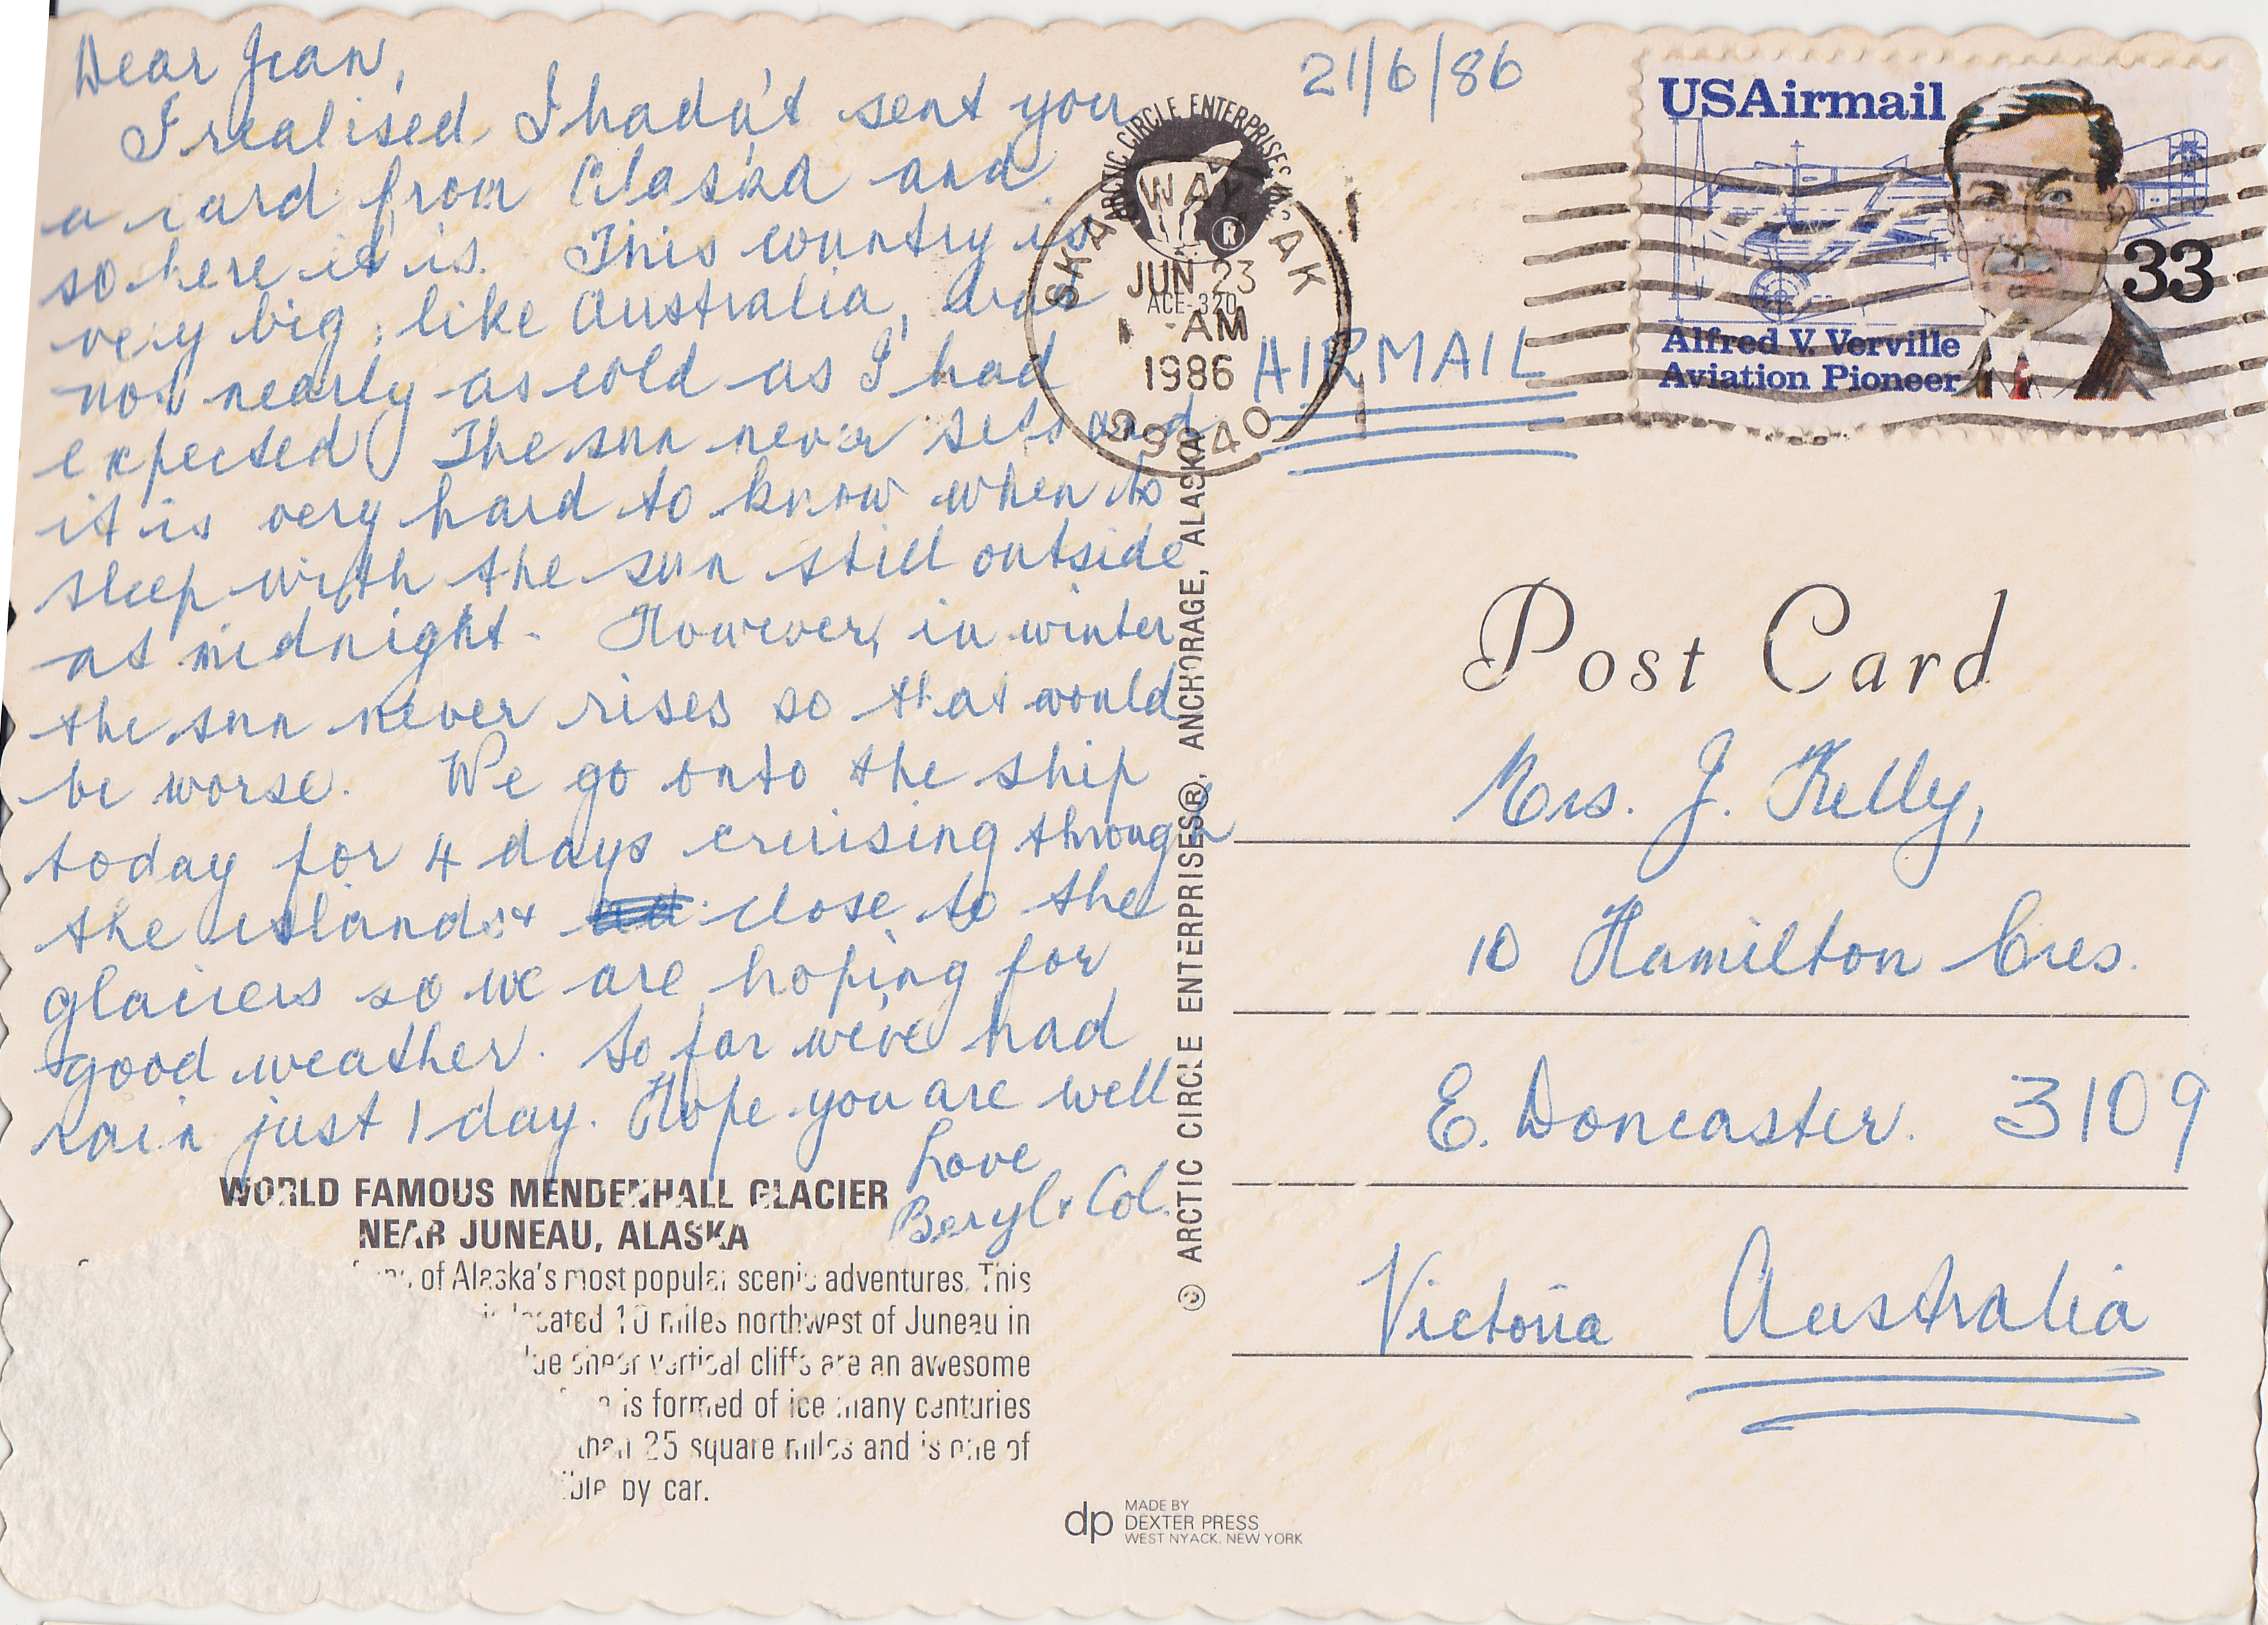 Dear Jean,
I realised I hadn't sent you
a card from Alaska and
so here it is. This country is
very big, like Australia, and
not nearly as cold as I had
expected. The sun never sets and
it is very hard to know when to
sleep with the sun still outside
at midnight. However, in winter
the sun never rises so that would
be worse. We go onto the ship
today for 4 days cruising through
the islands & close to the
glaciers so we are hoping for
good weather. So far we've had
rain just 1 day. Hope you are well
Love
Beryl & Col.
WORLD FAMOUS MENDENHALL GLACIER
NEAR JUNEAU, ALASKA
of Alaska's most popular scenic adventures. This
is located 10 miles northwest of Juneau in
sheer vertical cliffs are an awesome
is formed of ice many centuries
than 25 square miles and is one of
by car.
© ARCTIC CIRCLE ENTERPRISES®, ANCHORAGE, ALASKA
dp MADE BY
DEXTER PRESS
WEST NYACK, NEW YORK
21/6/86
ARCTIC CIRCLE ENTERPRISES
®
ACE-320
SKAGWAY AK
JUN 23
AM
1986
99840
AIRMAIL
USAirmail
33
Alfred V. Verville
Aviation Pioneer
Post Card
Mrs. J. Kelly,
10 Hamilton Cres.
E. Doncaster. 3109
Victoria Australia